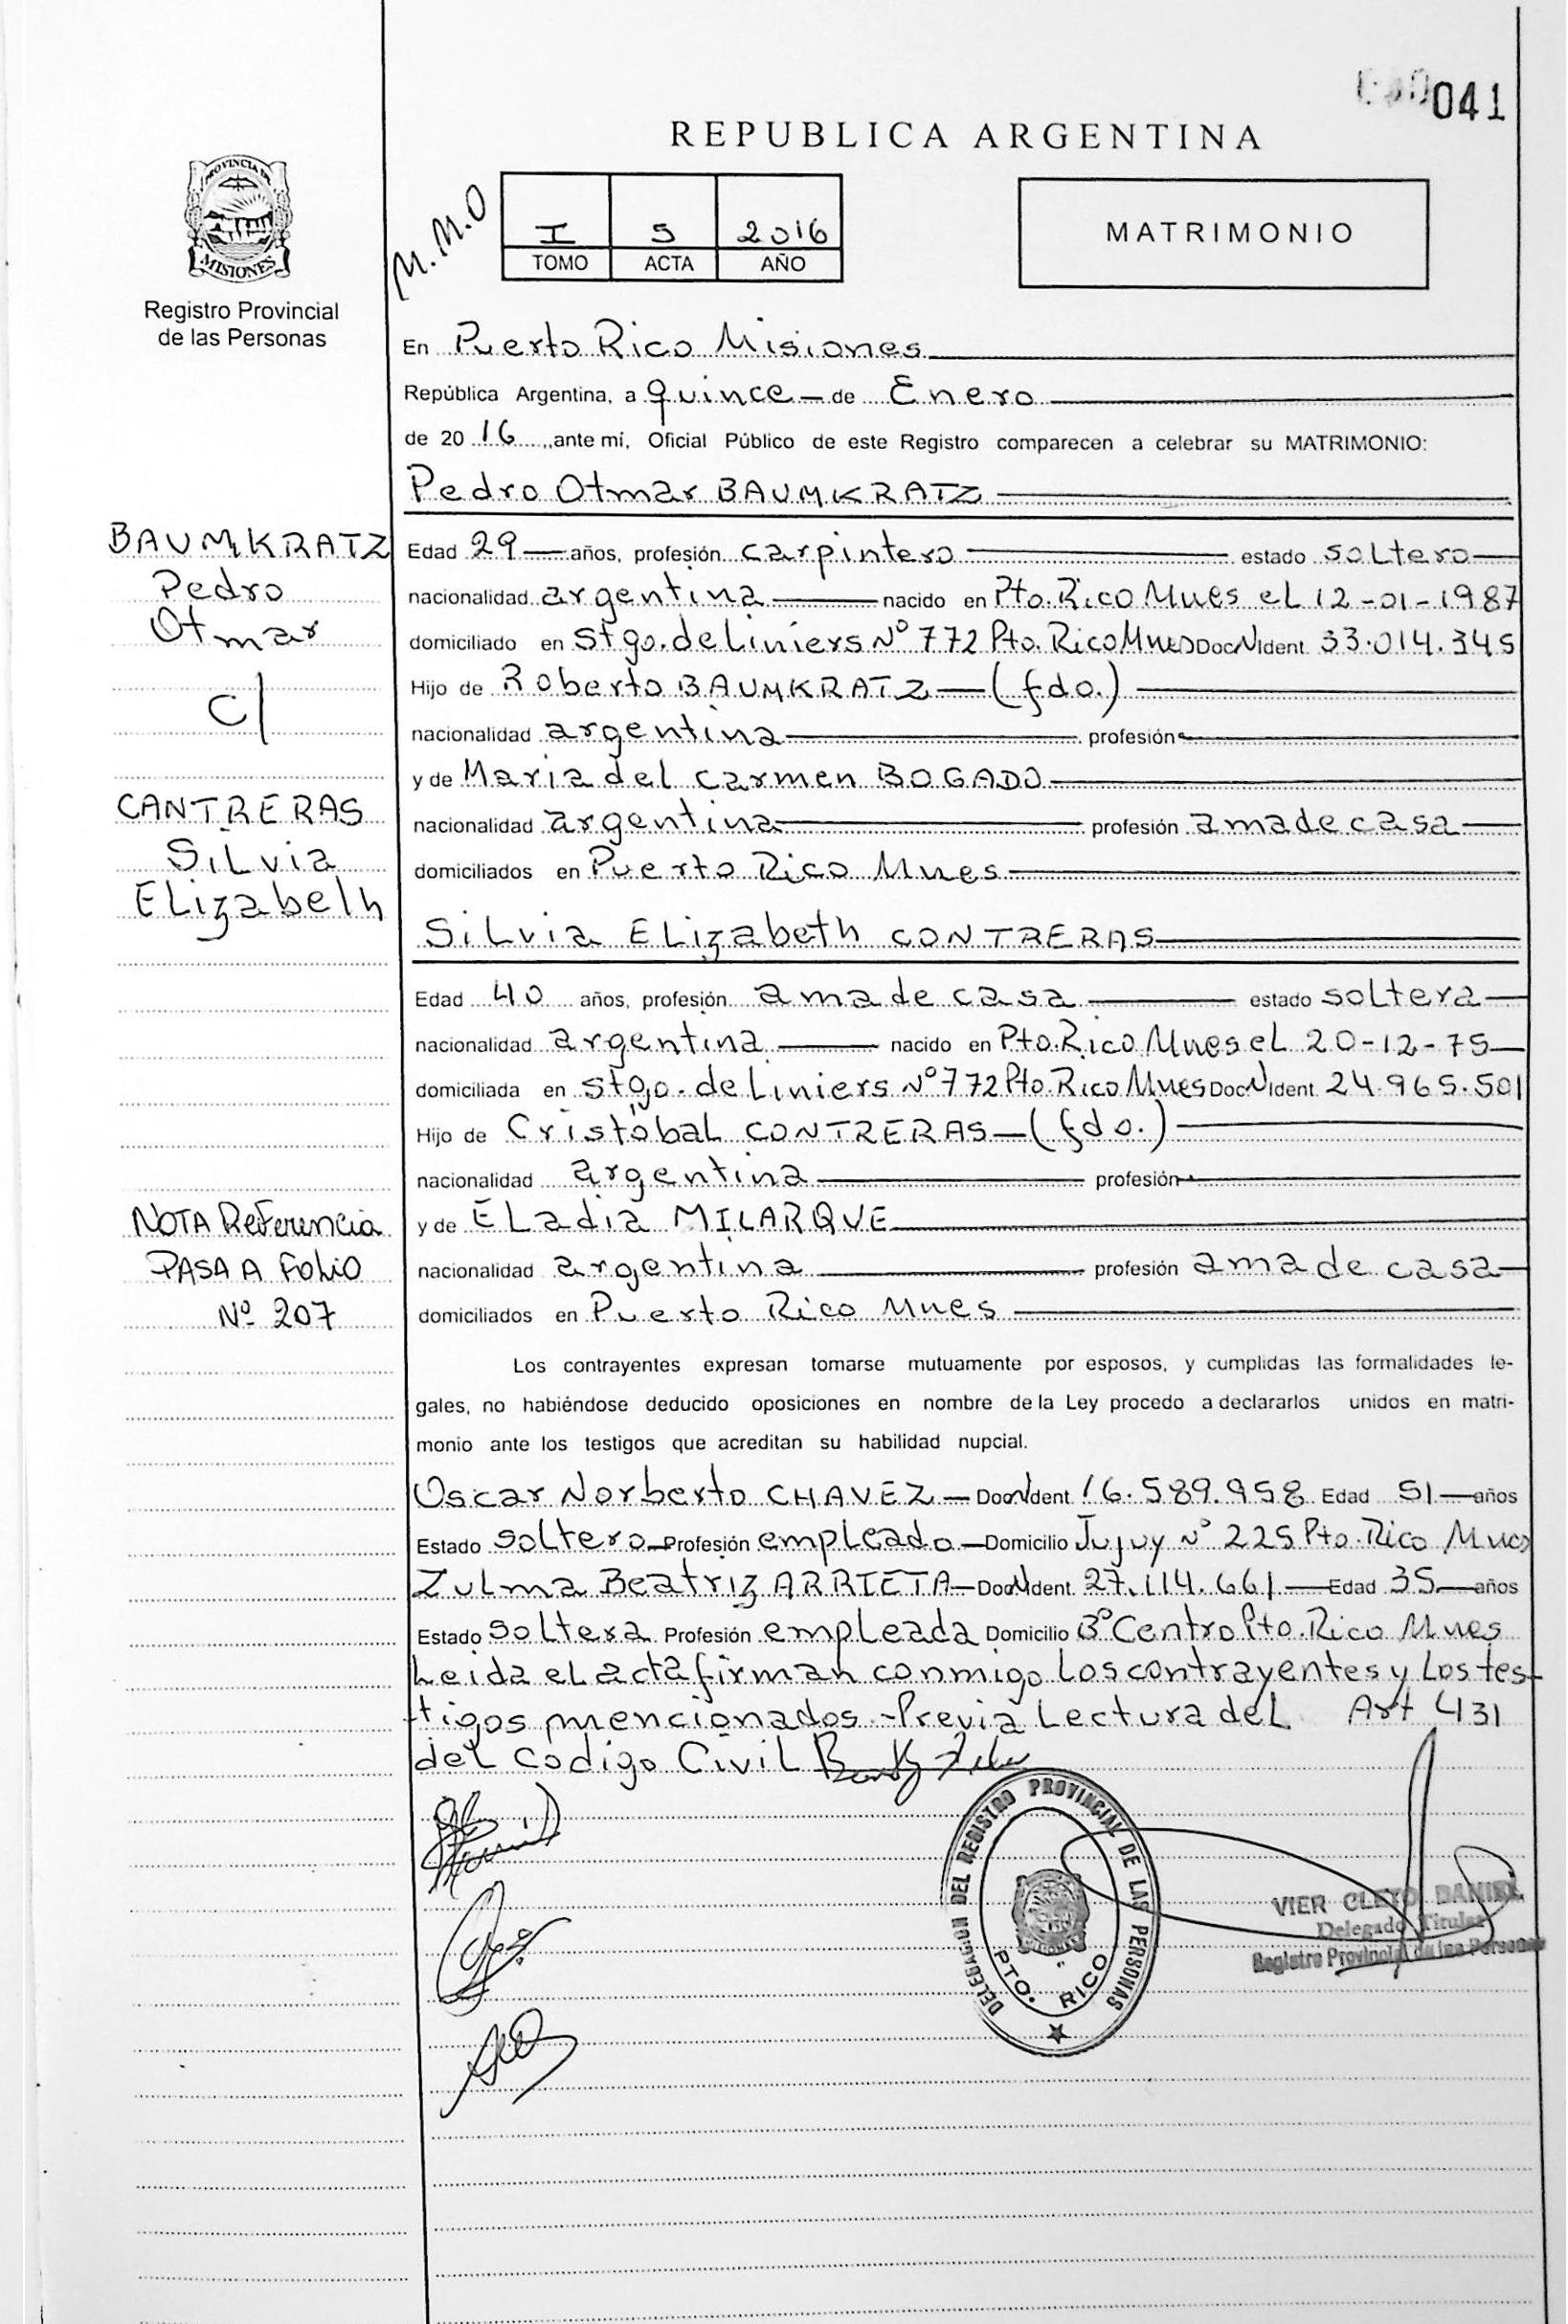 041
REPUBLICA ARGENTINA
PROVINCIA DE
MISIONES
Registro Provincial
de las Personas
M.M.O
I 5 2016
TOMO ACTA AÑO
MATRIMONIO
En Puerto Rico Misiones
República Argentina, a quince de Enero
de 20 16 ,ante mí, Oficial Público de este Registro comparecen a celebrar su MATRIMONIO:
Pedro Otmar BAUMKRATZ
BAUMKRATZ
Pedro
Otmar
c/
CANTRERAS
Silvia
Elizabelh
Edad 29 años, profesión carpintero estado soltero
nacionalidad argentina nacido en Pto. Rico Mnes el 12-01-1987
domiciliado en Stgo. de Liniers Nº 772 Pto. Rico Mnes Doc N Ident. 33.014.345
Hijo de Roberto BAUMKRATZ — (fdo.)
nacionalidad argentina profesión
y de Maria del Carmen BOGADO
nacionalidad argentina profesión ama de casa
domiciliados en Puerto Rico Mnes
Silvia Elizabeth CONTRERAS
Edad 40 años, profesión ama de casa estado soltera
nacionalidad argentina nacido en Pto. Rico Mnes el 20-12-75
domiciliada en Stgo. de Liniers Nº 772 Pto. Rico Mnes Doc N Ident. 24.965.501
Hijo de Cristóbal CONTRERAS — (fdo.)
nacionalidad argentina profesión
y de Eladia MILARQUE
nacionalidad argentina profesión ama de casa
domiciliados en Puerto Rico Mnes
NOTA Referencia
PASA A Folio
Nº 207
Los contrayentes expresan tomarse mutuamente por esposos, y cumplidas las formalidades le-
gales, no habiéndose deducido oposiciones en nombre de la Ley procedo a declararlos unidos en matri-
monio ante los testigos que acreditan su habilidad nupcial.
Oscar Norberto CHAVEZ — Doc N Ident. 16.589.958 Edad 51 años
Estado soltero Profesión empleado Domicilio Jujuy Nº 225 Pto. Rico Mnes
Zulma Beatriz ARRIETA Doc N Ident. 27.114.661 Edad 35 años
Estado soltera Profesión empleada Domicilio Bº Centro Pto. Rico Mnes
Leida el acta firman conmigo los contrayentes y los tes-
tigos mencionados - Previa Lectura del Art 431
del Codigo Civil
DELEGACION DEL REGISTRO PROVINCIAL DE LAS PERSONAS
PTO. RICO
VIER CLETO DANIEL
Delegado Titular
Registro Provincial de las Personas